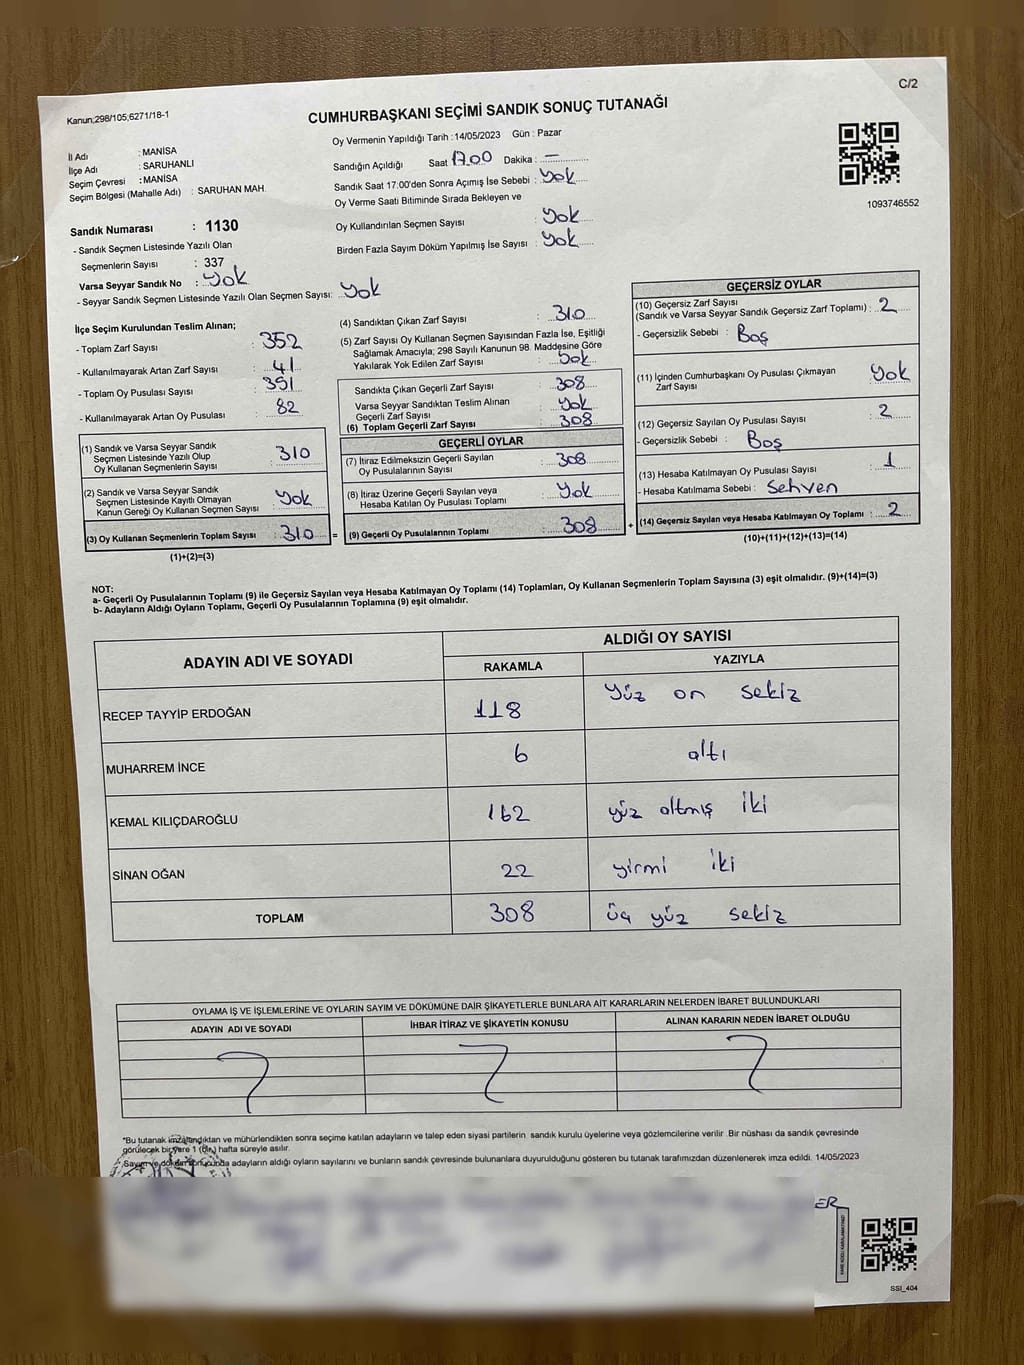 C/2
Kanun;298/105,6271/18-1
CUMHURBAŞKANI SEÇİMİ SANDIK SONUÇ TUTANAĞI
Oy Vermenin Yapıldığı Tarih :14/05/2023 Gün : Pazar
İl Adı : MANİSA
İlçe Adı : SARUHANLI
Seçim Çevresi : MANİSA
Seçim Bölgesi (Mahalle Adı) : SARUHAN MAH.
Sandığın Açıldığı Saat 17.00 Dakika : —
Sandık Saat 17:00'den Sonra Açımış İse Sebebi : Yok
Oy Verme Saati Bitiminde Sırada Bekleyen ve
Oy Kullandırılan Seçmen Sayısı Yok
Birden Fazla Sayım Döküm Yapılmış İse Sayısı : Yok
1093746552
Sandık Numarası : 1130
- Sandık Seçmen Listesinde Yazılı Olan
Seçmenlerin Sayısı : 337
Varsa Seyyar Sandık No : Yok
- Seyyar Sandık Seçmen Listesinde Yazılı Olan Seçmen Sayısı: Yok
İlçe Seçim Kurulundan Teslim Alınan;
- Toplam Zarf Sayısı : 352
- Kullanılmayarak Artan Zarf Sayısı : 41
- Toplam Oy Pusulası Sayısı : 391
- Kullanılmayarak Artan Oy Pusulası : 82
(1) Sandık ve Varsa Seyyar Sandık
Seçmen Listesinde Yazılı Olup
Oy Kullanan Seçmenlerin Sayısı : 310
(2) Sandık ve Varsa Seyyar Sandık
Seçmen Listesinde Kayıtlı Olmayan
Kanun Gereği Oy Kullanan Seçmen Sayısı : Yok
(3) Oy Kullanan Seçmenlerin Toplam Sayısı : 310 =
(1)+(2)=(3)
(4) Sandıktan Çıkan Zarf Sayısı : 310
(5) Zarf Sayısı Oy Kullanan Seçmen Sayısından Fazla İse, Eşitliği
Sağlamak Amacıyla; 298 Sayılı Kanunun 98. Maddesine Göre
Yakılarak Yok Edilen Zarf Sayısı : Yok
Sandıkta Çıkan Geçerli Zarf Sayısı : 308
Varsa Seyyar Sandıktan Teslim Alınan
Geçerli Zarf Sayısı : Yok
(6) Toplam Geçerli Zarf Sayısı : 308
GEÇERLİ OYLAR
(7) İtiraz Edilmeksizin Geçerli Sayılan
Oy Pusulalarının Sayısı : 308
(8) İtiraz Üzerine Geçerli Sayılan veya
Hesaba Katılan Oy Pusulası Toplamı : Yok
(9) Geçerli Oy Pusulalarının Toplamı : 308 +
GEÇERSİZ OYLAR
(10) Geçersiz Zarf Sayısı
(Sandık ve Varsa Seyyar Sandık Geçersiz Zarf Toplamı) : 2
- Geçersizlik Sebebi : Boş
(11) İçinden Cumhurbaşkanı Oy Pusulası Çıkmayan
Zarf Sayısı : Yok
(12) Geçersiz Sayılan Oy Pusulası Sayısı : 2
- Geçersizlik Sebebi : Boş
(13) Hesaba Katılmayan Oy Pusulası Sayısı : 1
- Hesaba Katılmama Sebebi : Sehven
(14) Geçersiz Sayılan veya Hesaba Katılmayan Oy Toplamı : 2
(10)+(11)+(12)+(13)=(14)
NOT:
a- Geçerli Oy Pusulalarının Toplamı (9) ile Geçersiz Sayılan veya Hesaba Katılmayan Oy Toplamı (14) Toplamları, Oy Kullanan Seçmenlerin Toplam Sayısına (3) eşit olmalıdır. (9)+(14)=(3)
b- Adayların Aldığı Oyların Toplamı, Geçerli Oy Pusulalarının Toplamına (9) eşit olmalıdır.
ADAYIN ADI VE SOYADI
ALDIĞI OY SAYISI
RAKAMLA YAZIYLA
RECEP TAYYİP ERDOĞAN 118 Yüz on sekiz
MUHARREM İNCE 6 altı
KEMAL KILIÇDAROĞLU 162 yüz altmış iki
SİNAN OĞAN 22 yirmi iki
TOPLAM 308 üç yüz sekiz
OYLAMA İŞ VE İŞLEMLERİNE VE OYLARIN SAYIM VE DÖKÜMÜNE DAİR ŞİKAYETLERLE BUNLARA AİT KARARLARIN NELERDEN İBARET BULUNDUKLARI
ADAYIN ADI VE SOYADI İHBAR İTİRAZ VE ŞİKAYETİN KONUSU ALINAN KARARIN NEDEN İBARET OLDUĞU
"Bu tutanak imzalandıktan ve mühürlendikten sonra seçime katılan adayların ve talep eden siyasi partilerin sandık kurulu üyelerine veya gözlemcilerine verilir .Bir nüshası da sandık çevresinde
görülecek bir yere 1 (bir) hafta süreyle asılır.
Sayım ve döküm sonucunda adayların aldığı oyların sayılarını ve bunların sandık çevresinde bulunanlara duyurulduğunu gösteren bu tutanak tarafımızdan düzenlenerek imza edildi. 14/05/2023
ER
SSI_404